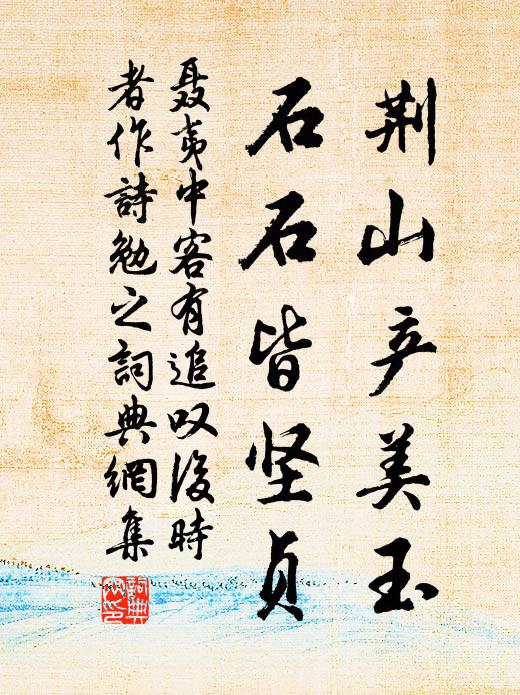 荆山产美玉
石石皆坚贞
聂夷中客有追叹後時
者作詩勉之詞典網集